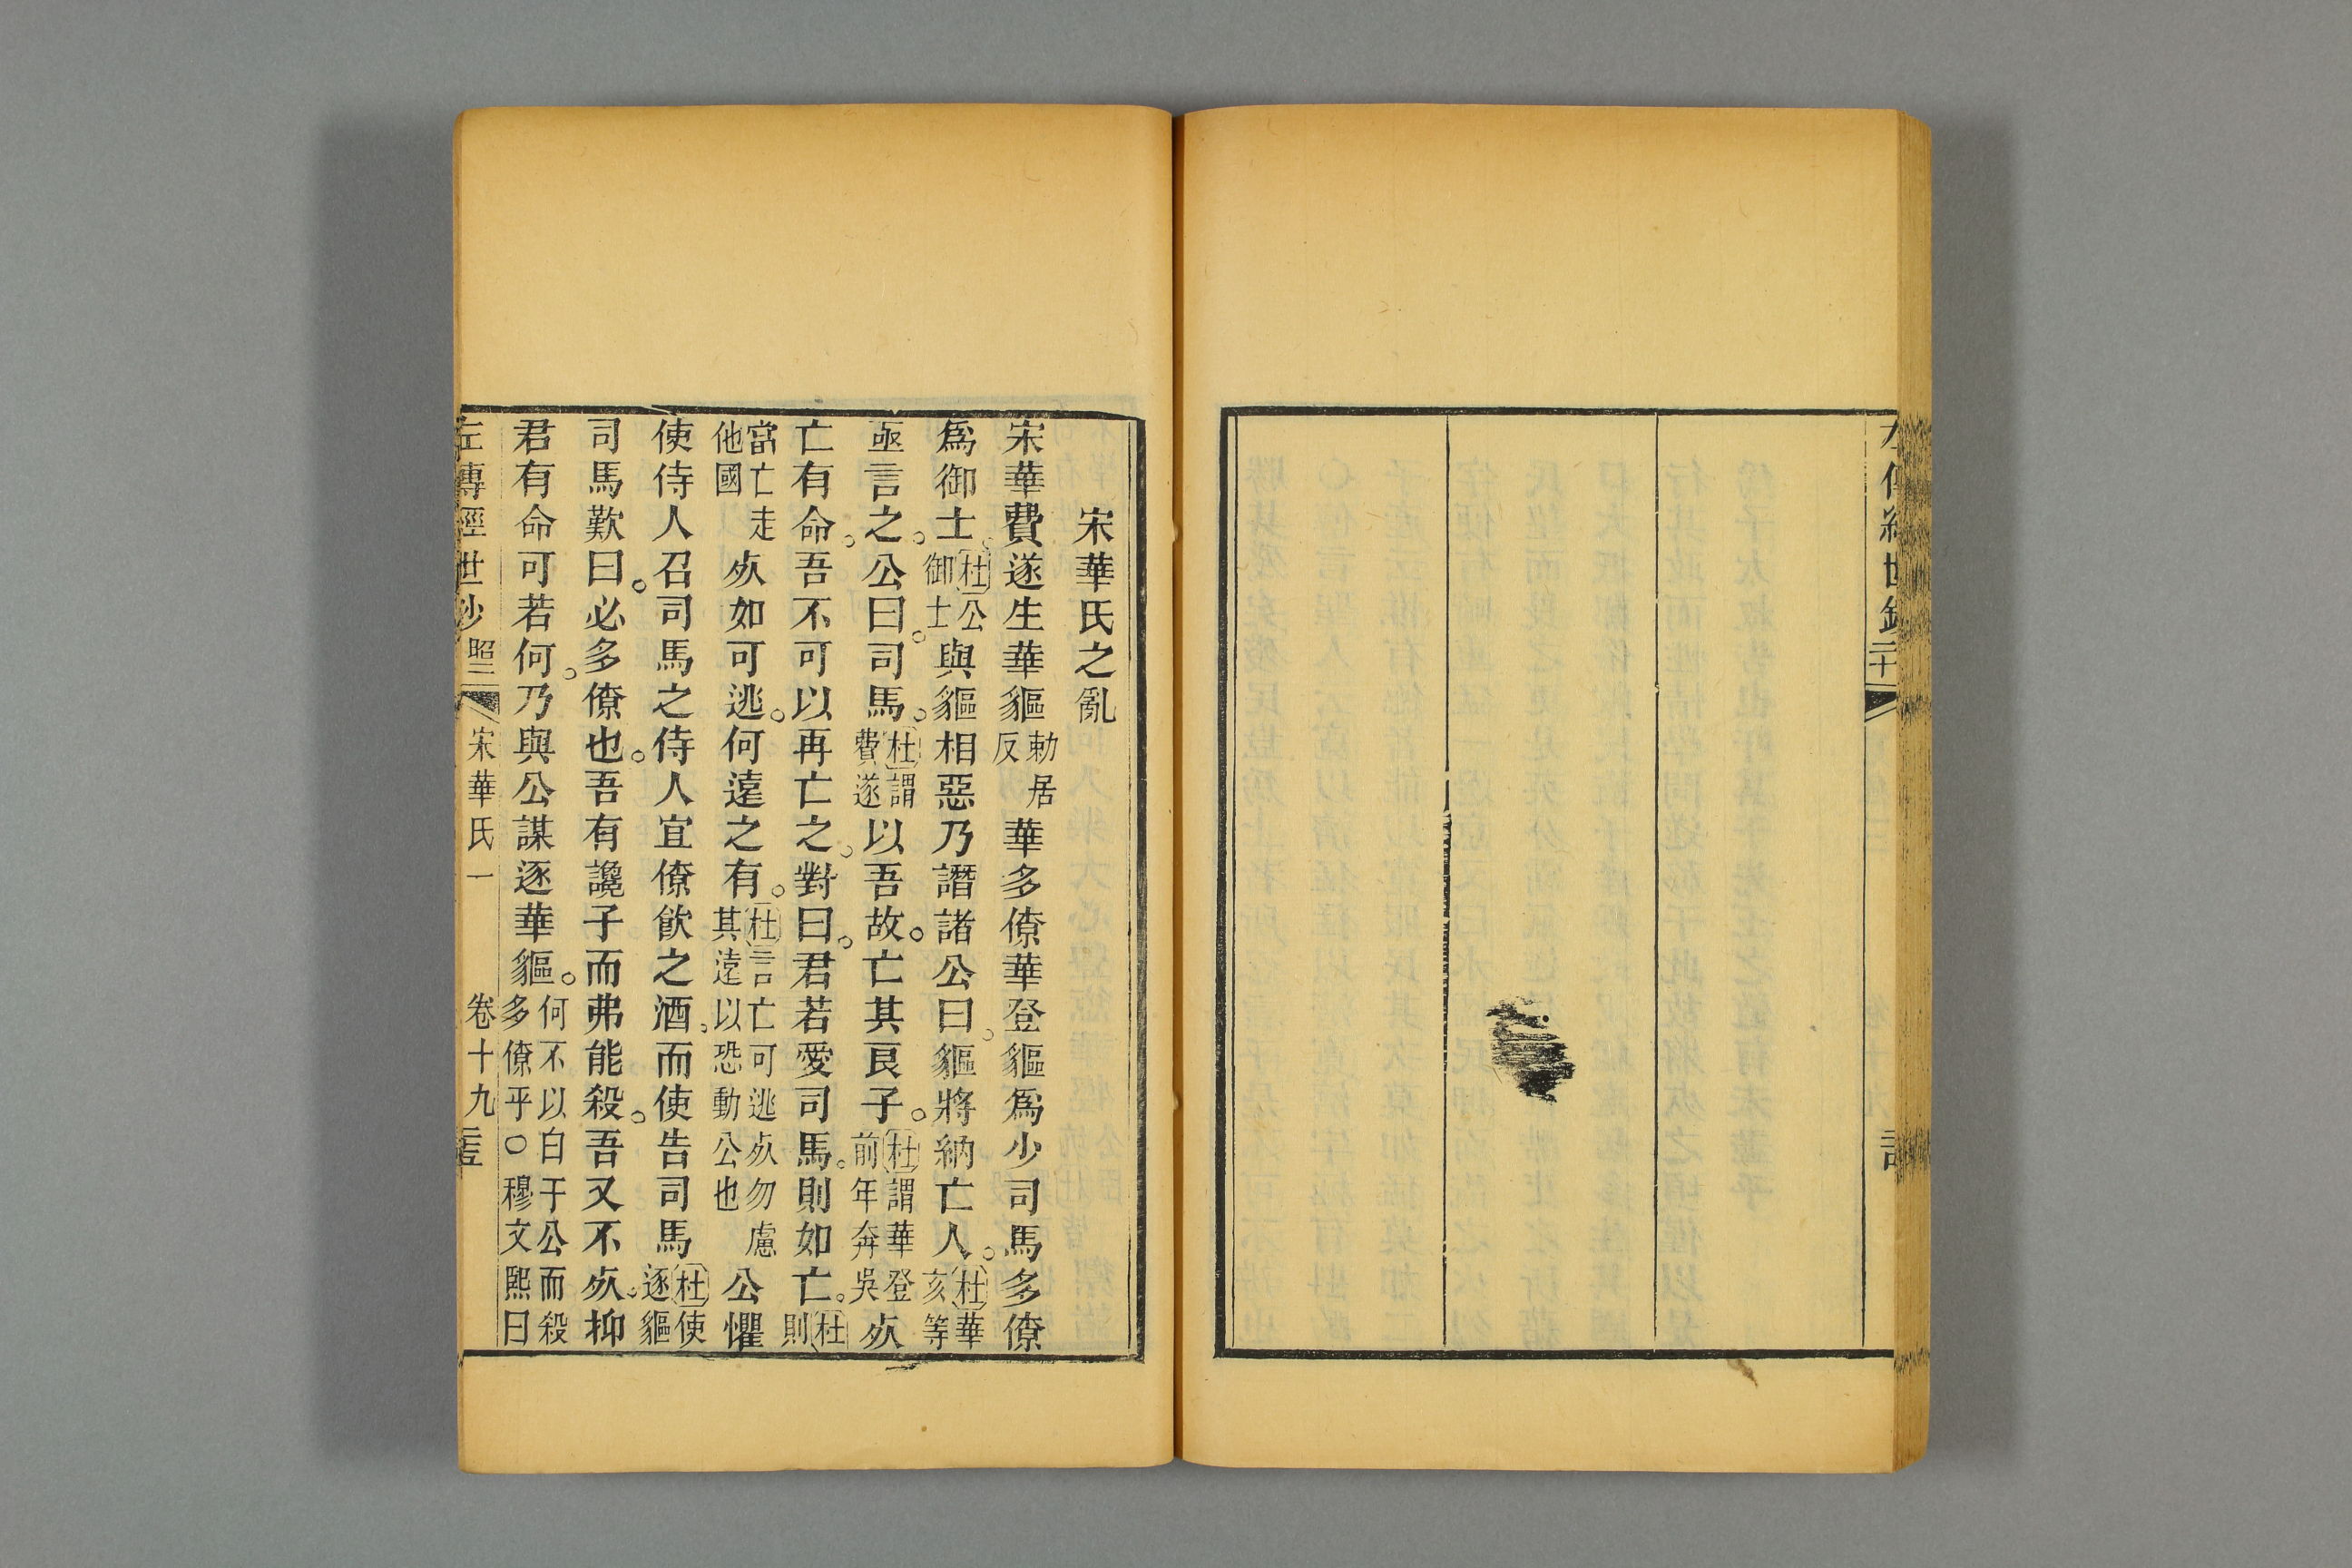 宋華氏之亂
宋華費遂生華貙勅居反華多僚華登貙爲少司馬多僚
爲御士。杜公御士與貙相惡乃譖諸公曰。貙將納亡人。杜華亥等
亟言之。公曰。司馬。杜謂費遂以吾故。亡其良子。杜謂華登前年奔吳歺
亡有命。吾不可以再亡之。對曰。君若愛司馬。則如亡。杜則
當亡走他國歺如可逃。何遠之有。杜言亡可逃歺勿慮其遠以恐動公也公懼
使侍人召司馬之侍人宜僚飲之酒。而使告司馬杜使逐貙
司馬歎曰。必多僚也。吾有讒子而弗能殺。吾又不歺。抑
君有命可若何。乃與公謀逐華貙。何不以白于公而殺多僚乎○穆文熙曰
左傳經世鈔 昭二 宋華氏一 卷十九